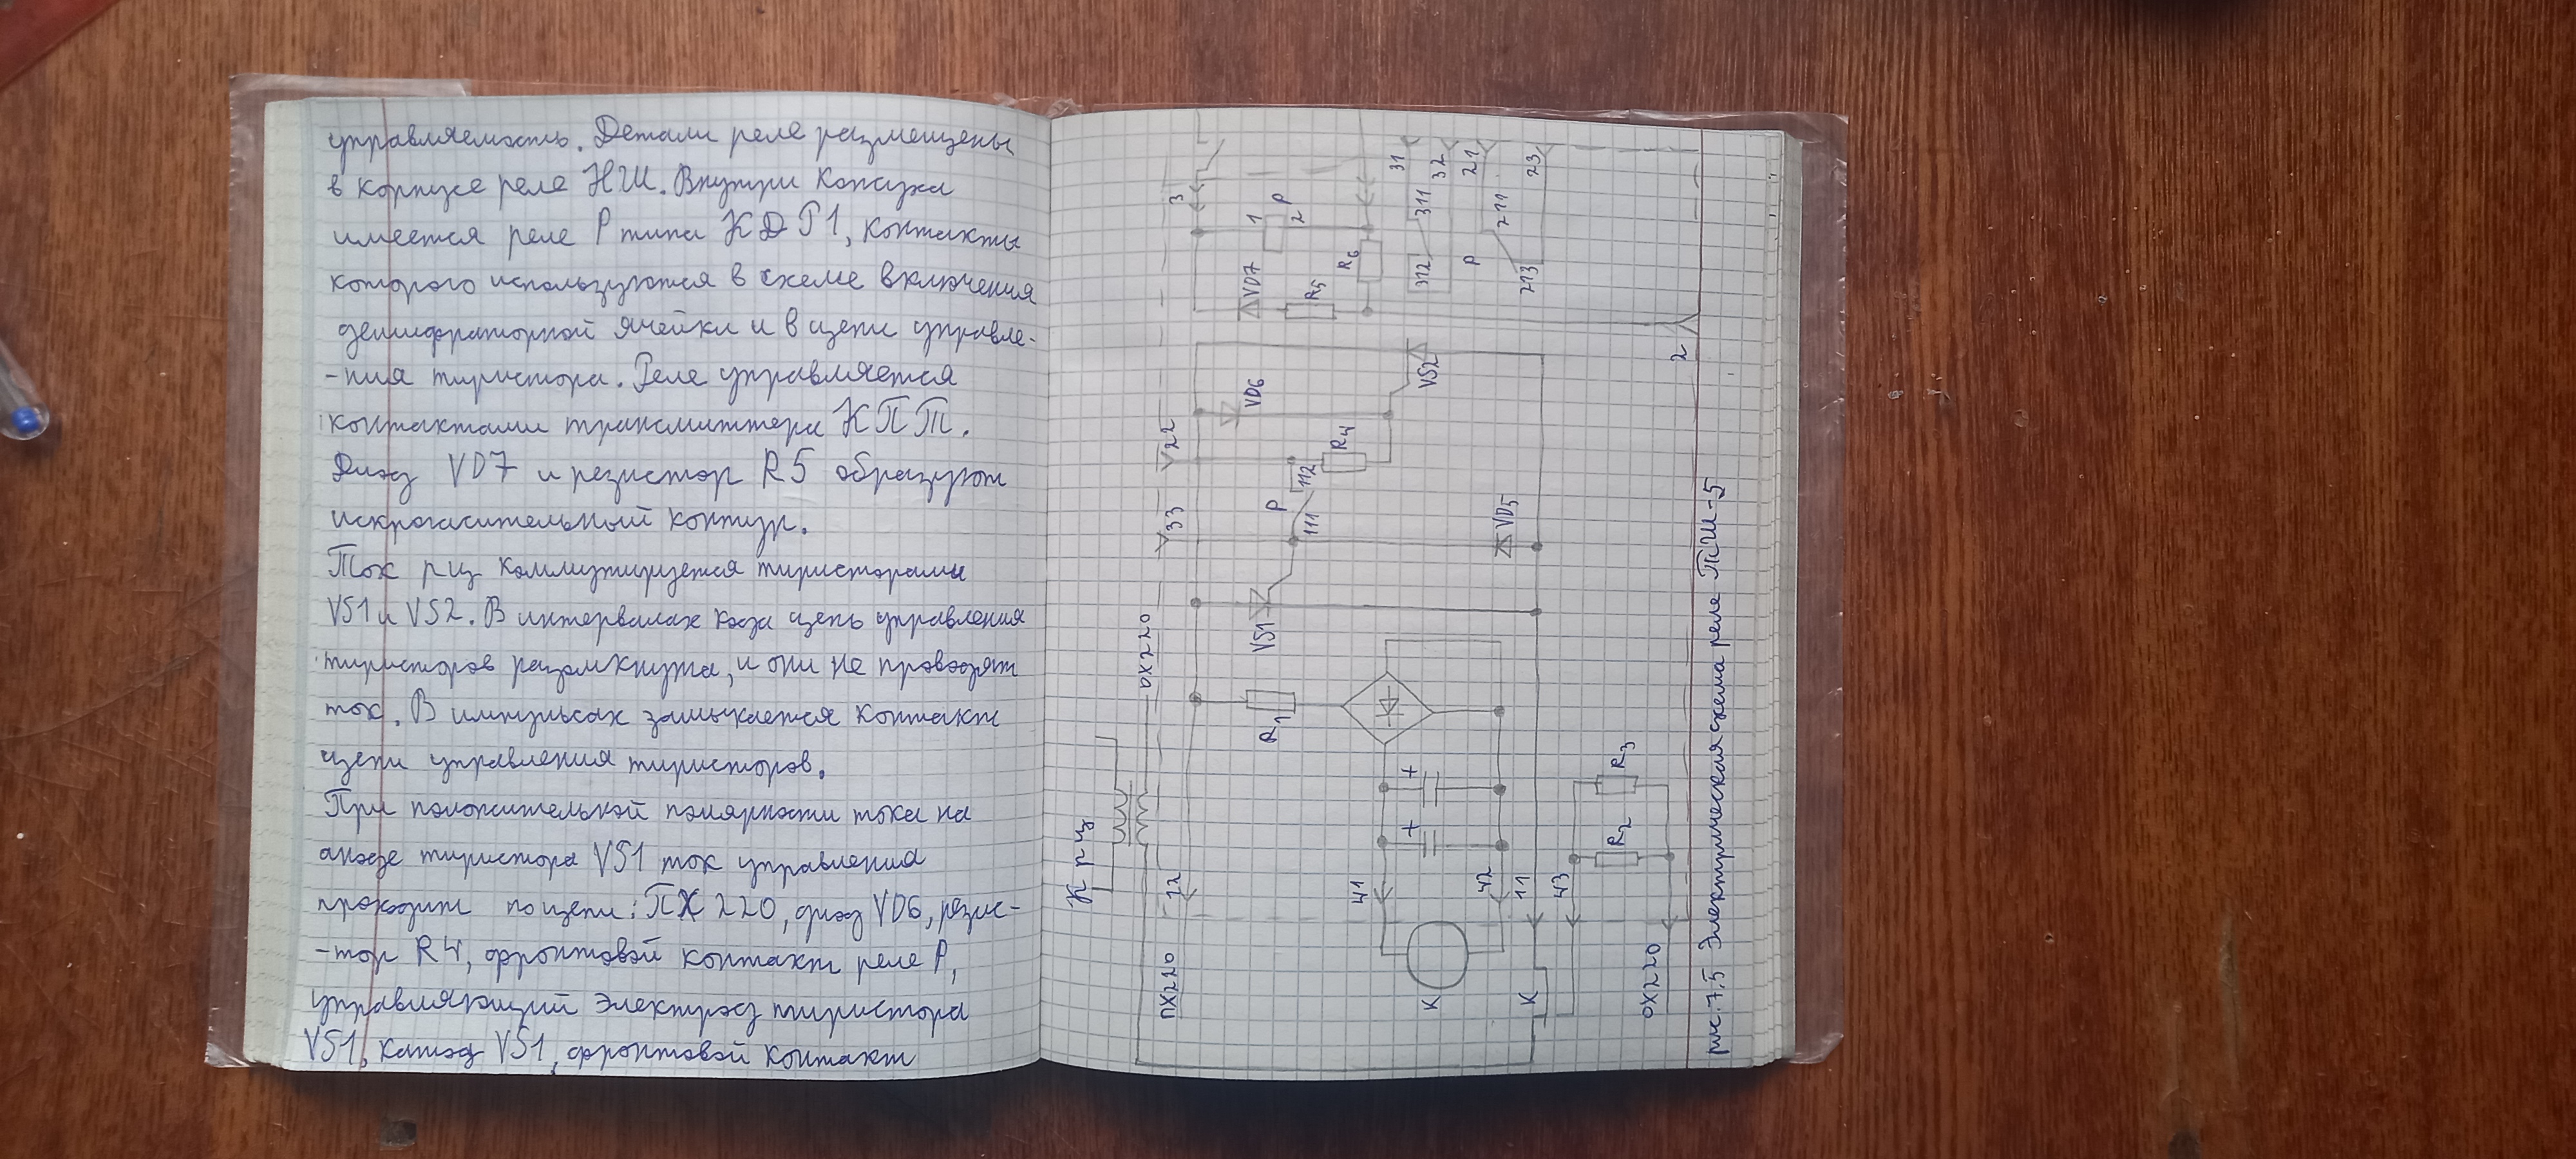 управляемость. Детали реле размещены
в корпусе реле НШ. Внутри кожуха
имеется реле Р типа КДР1, контакты
которого используются в схеме включения
дешифраторной ячейки и в цепи управле-
-ния тиристора. Реле управляется
контактами трансмиттера КПТ.
Диод VD7 и резистор R5 образуют
искрогасительный контур.
Ток рц коммутируется тиристорами
VS1 и VS2. В интервалах кода цепь управления
тиристоров разомкнута, и они не проводят
ток. В импульсах замыкается контакт
цепи управления тиристоров.
При положительной полярности тока на
аноде тиристора VS1 ток управления
проходит по цепи: ПХ 220, диод VD6, резис-
-тор R4, фронтовой контакт реле Р,
управляющий электрод тиристора
VS1, катод VS1, фронтовой контакт
К рц
ПХ220
12
ОХ220
33
22
3
R1
VS1
VD6
VD7
1
2
Р
Р
111
112
R4
R5
R6
VS2
VD5
К
41
42
+
+
312
311
31
32
Р
213
211
21
23
К
11
43
R2
R3
ОХ220
2
рис. 7.5 Электрическая схема реле ТШ-5